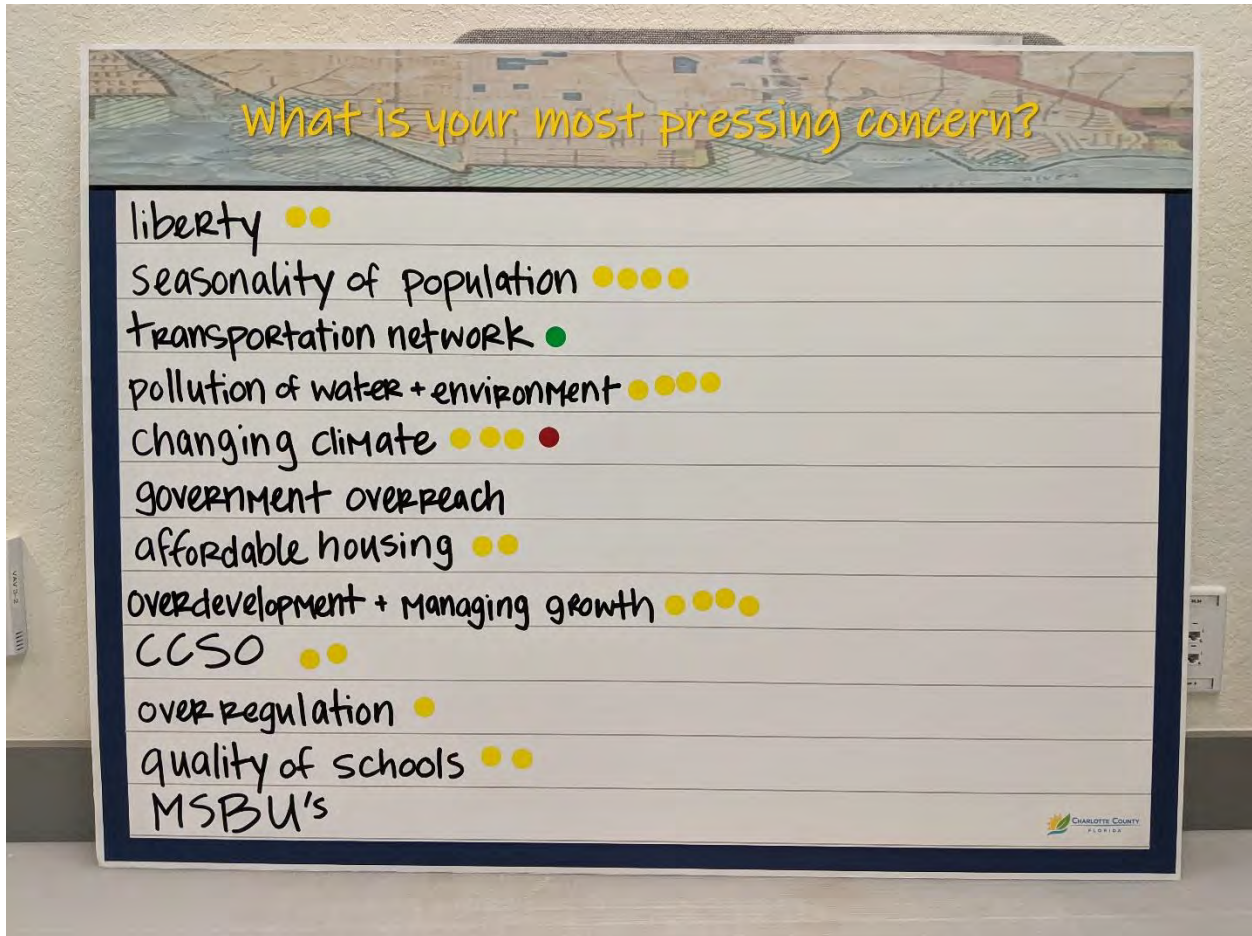 What is your most pressing concern?
liberty
seasonality of population
transportation network
pollution of water + environment
changing climate
government overreach
affordable housing
overdevelopment + managing growth
CCSO
over regulation
quality of schools
MSBU's
CHARLOTTE COUNTY
FLORIDA